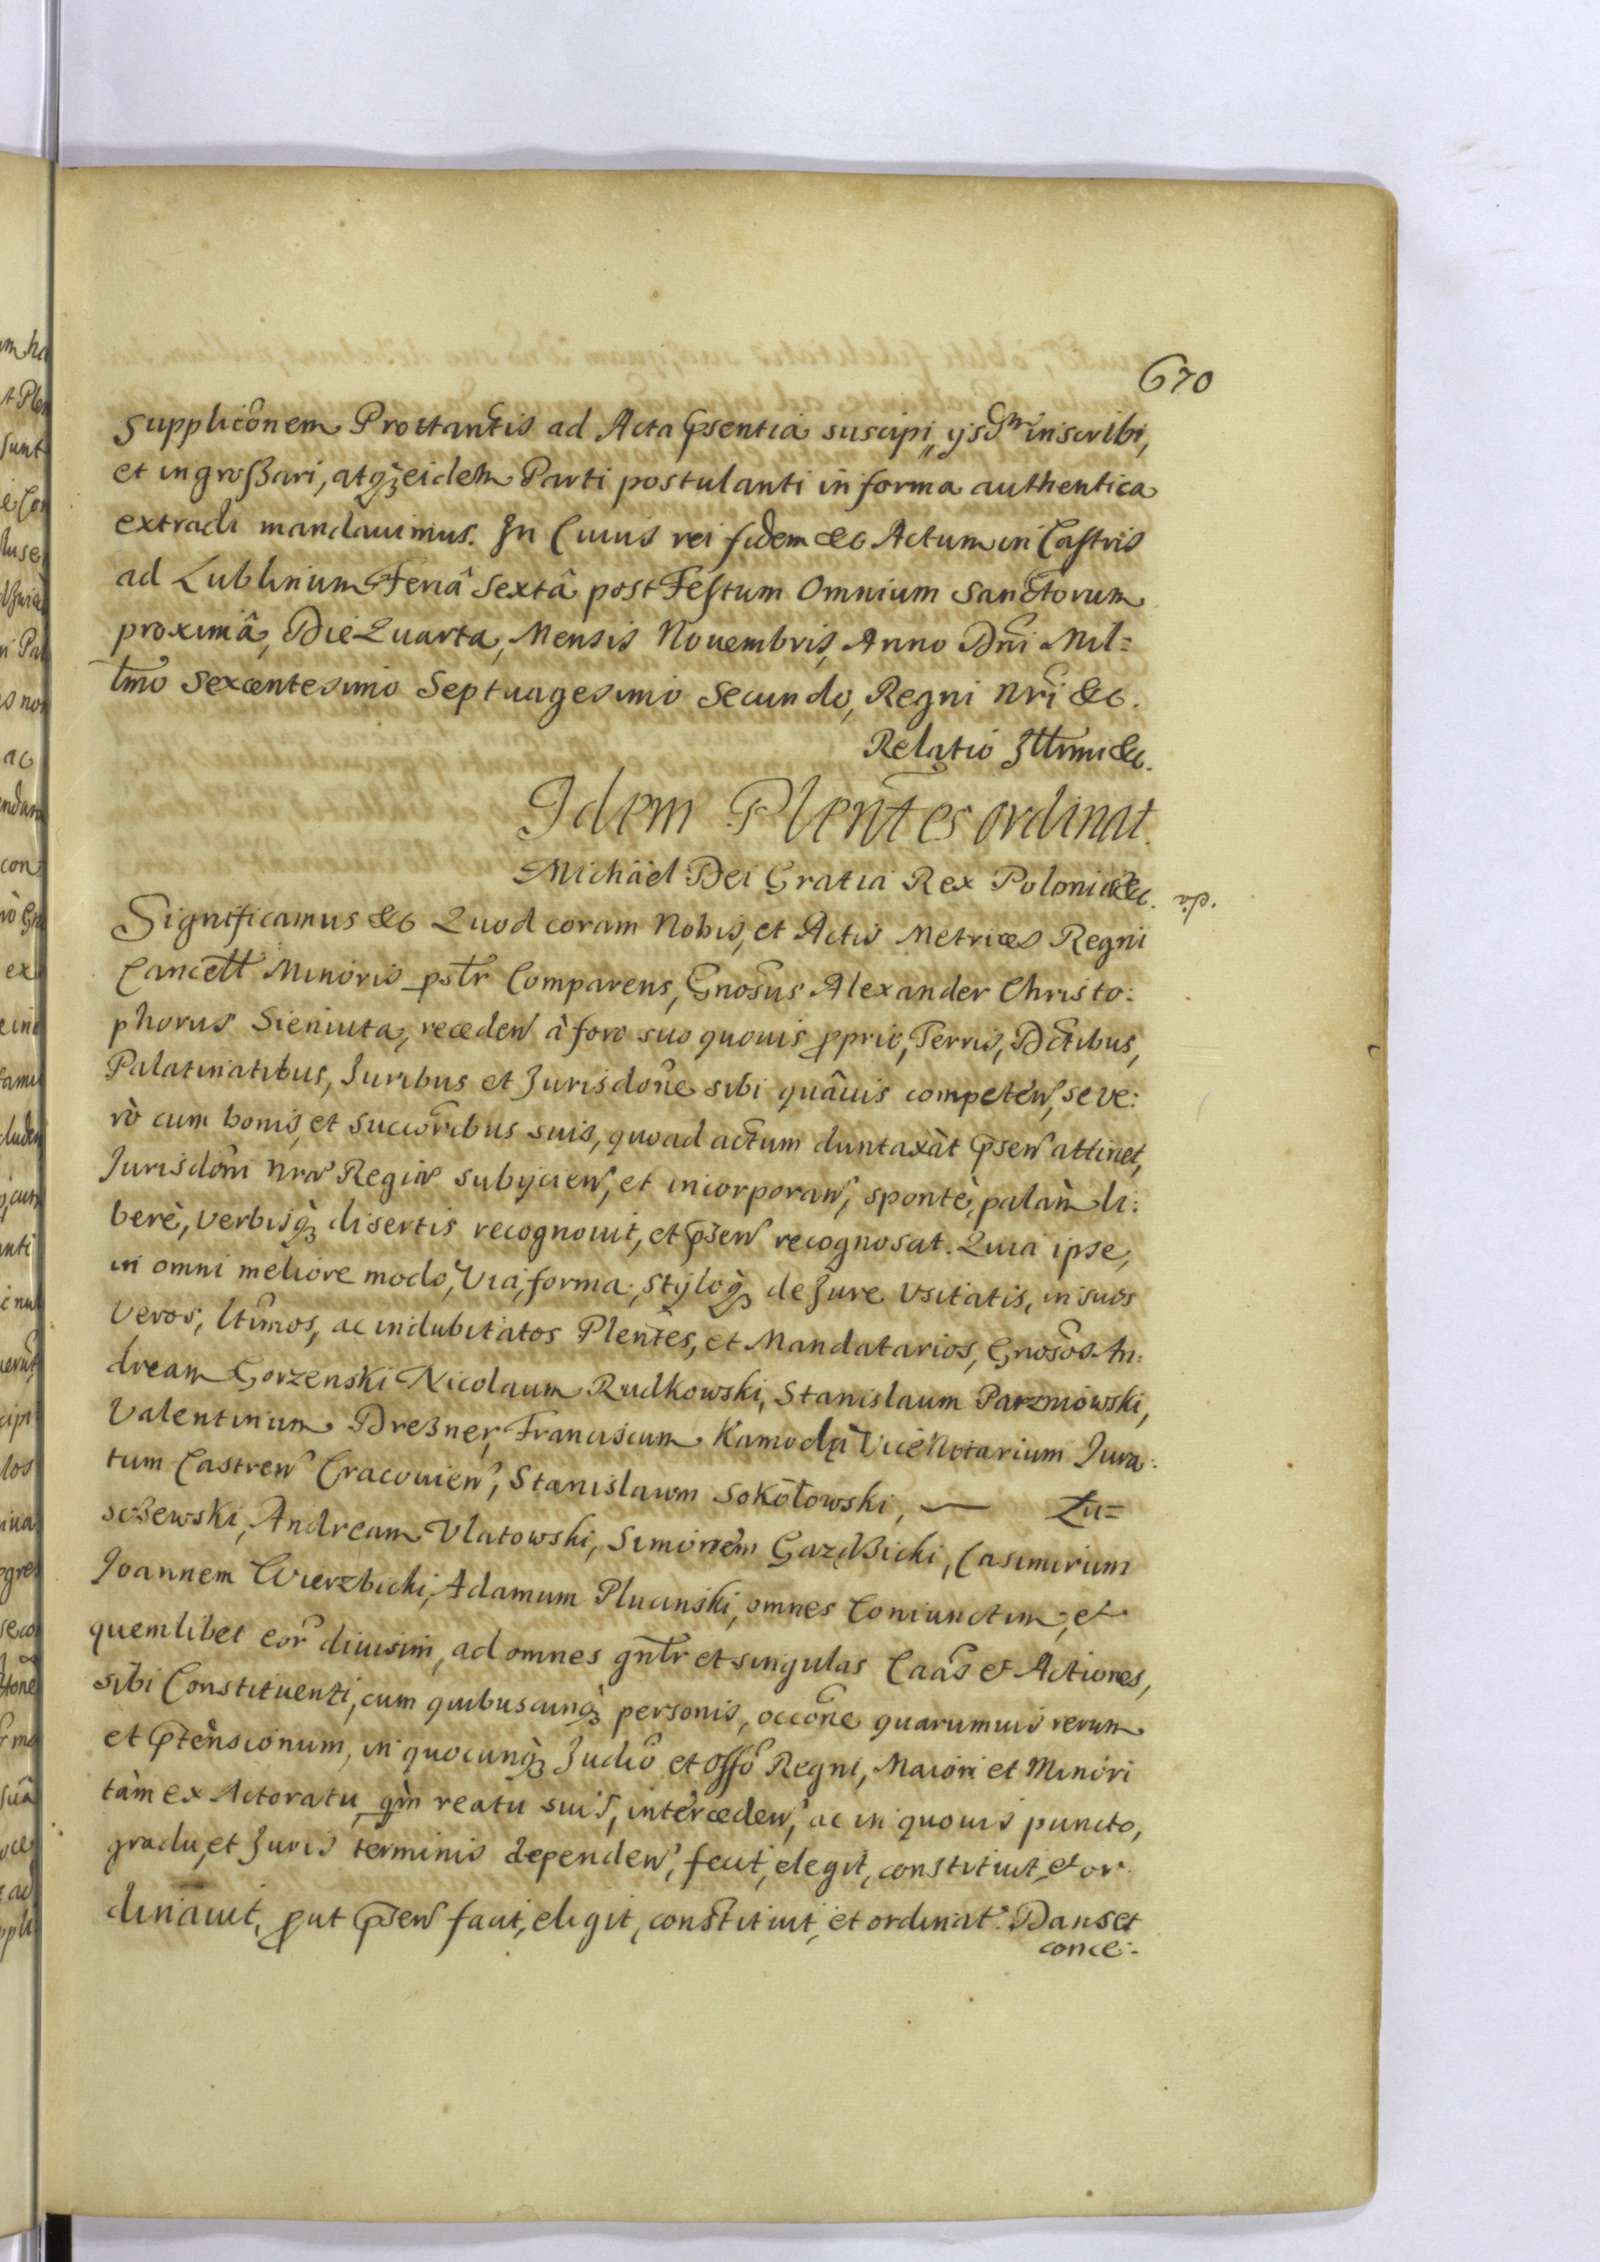 670
Supplicõnem Prottantis ad Acta Psentia suscipi, ijsdm inscribi,
et ingroßari, atq̀ eidem Parti postulanti in forma authentica
extradi mandauimus. In Cuius rei fidem &c Actum in Castris
ad Lublinum Feriâ Sextâ post Festum Omnium Sanctorum
proximâ, Die Quarta, Mensis Nouembris, Anno Dni Mil=
lmo Sexcentesimo Septuagesimo Secundo, Regni Nri &c.
Relatio Illrmi &c.
Idem Plentes ordinat.
Michäel Dei Gratia Rex Poloniæ &c. vp.
Significamus &c Quod coram Nobis, et Actis Metrices Regni
Cancell Minoris pstr Comparens, Gnosus Alexander Christo:
phorus Sieniuta, receden à foro suo quouis pprio, Terris, Dctibus,
Palatinatibus, Juribus et Jurisdone sibi quâuis competen, se ve:
rò cum bonis, et succoribus suis, quoad actum duntaxàt Psen attinet,
Jurisdoni Nræ Regiæ subijcien, et incorporan, spontè, palàm li:
berè, verbisq̀ disertis recognouit, et Psen recognoscit. Quia ipse,
in omni meliore modo, via, forma, stijloq̀ de Jure vsitatis, in suos
veros, ltimos, ac indubitatos Plentes, et Mandatarios, Gnosos An:
dream Gorzenski Nicolaum Rudkowski, Stanislaum Parzniowski,
Valentinum Dreßner, Franciscum Kamodą Vice Notarium Jura:
tum Castren Cracouien, Stanislaum Sokołowski, — Łu=
szewski, Andream Vlatowski, Simonem Gazdzicki, Casimirum
Joannem Wierzbicki, Adamum Plucinski, omnes Coniunctim, et
quemlibet eor diuisim, ad omnes gnlr et singulas Caas et Actiones,
sibi Constituenti, cum quibuscunq̀ personis, occone quarumuis rerum
et Ptensionum, in quocunq̀ Judio et Offo Regni, Maiori et Minori
tàm ex Actoratu, qm reatu suis, interceden, ac in quouis puncto,
gradu, et Juris terminis dependen, fecit, elegit, constituit, et or:
dinauit, put Psen facit, eligit, constituit, et ordinat. Dans et
conce: